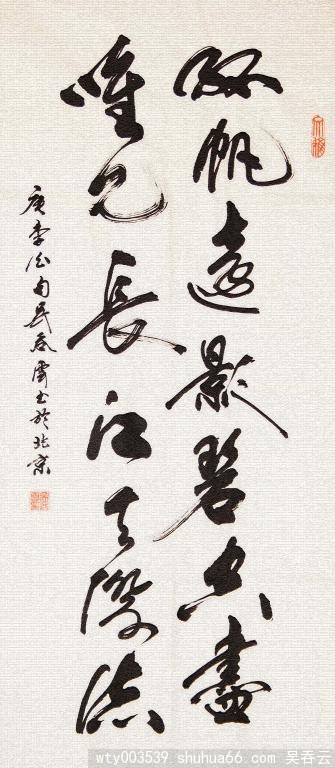 孤帆遠影碧空盡
唯見長江天際流
庚李白句吴吞雲書於北京
wty003539. shuhua66.com. 吴吞云